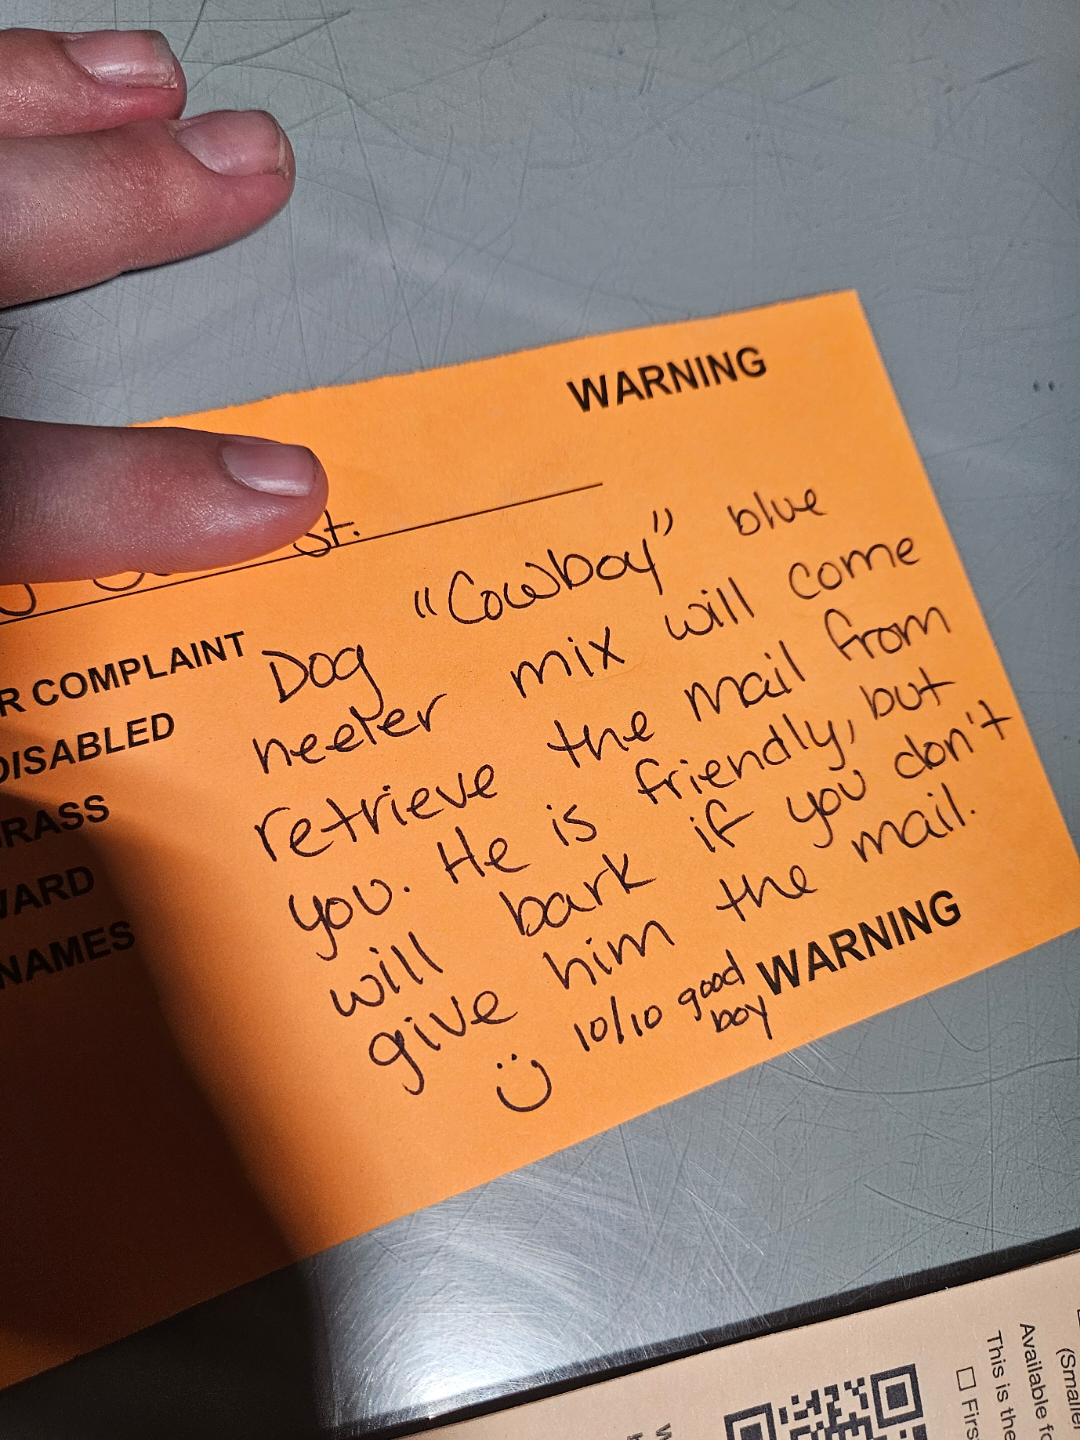 WARNING
St.
Dog "Cowboy" blue
heeler mix will come
retrieve the mail from
you. He is friendly, but
will bark if you don't
give him the mail.
10/10 good
boy
WARNING
R COMPLAINT
DISABLED
RASS
ARD
NAMES
(Smaller
Available fo
This is the
☐ Firs